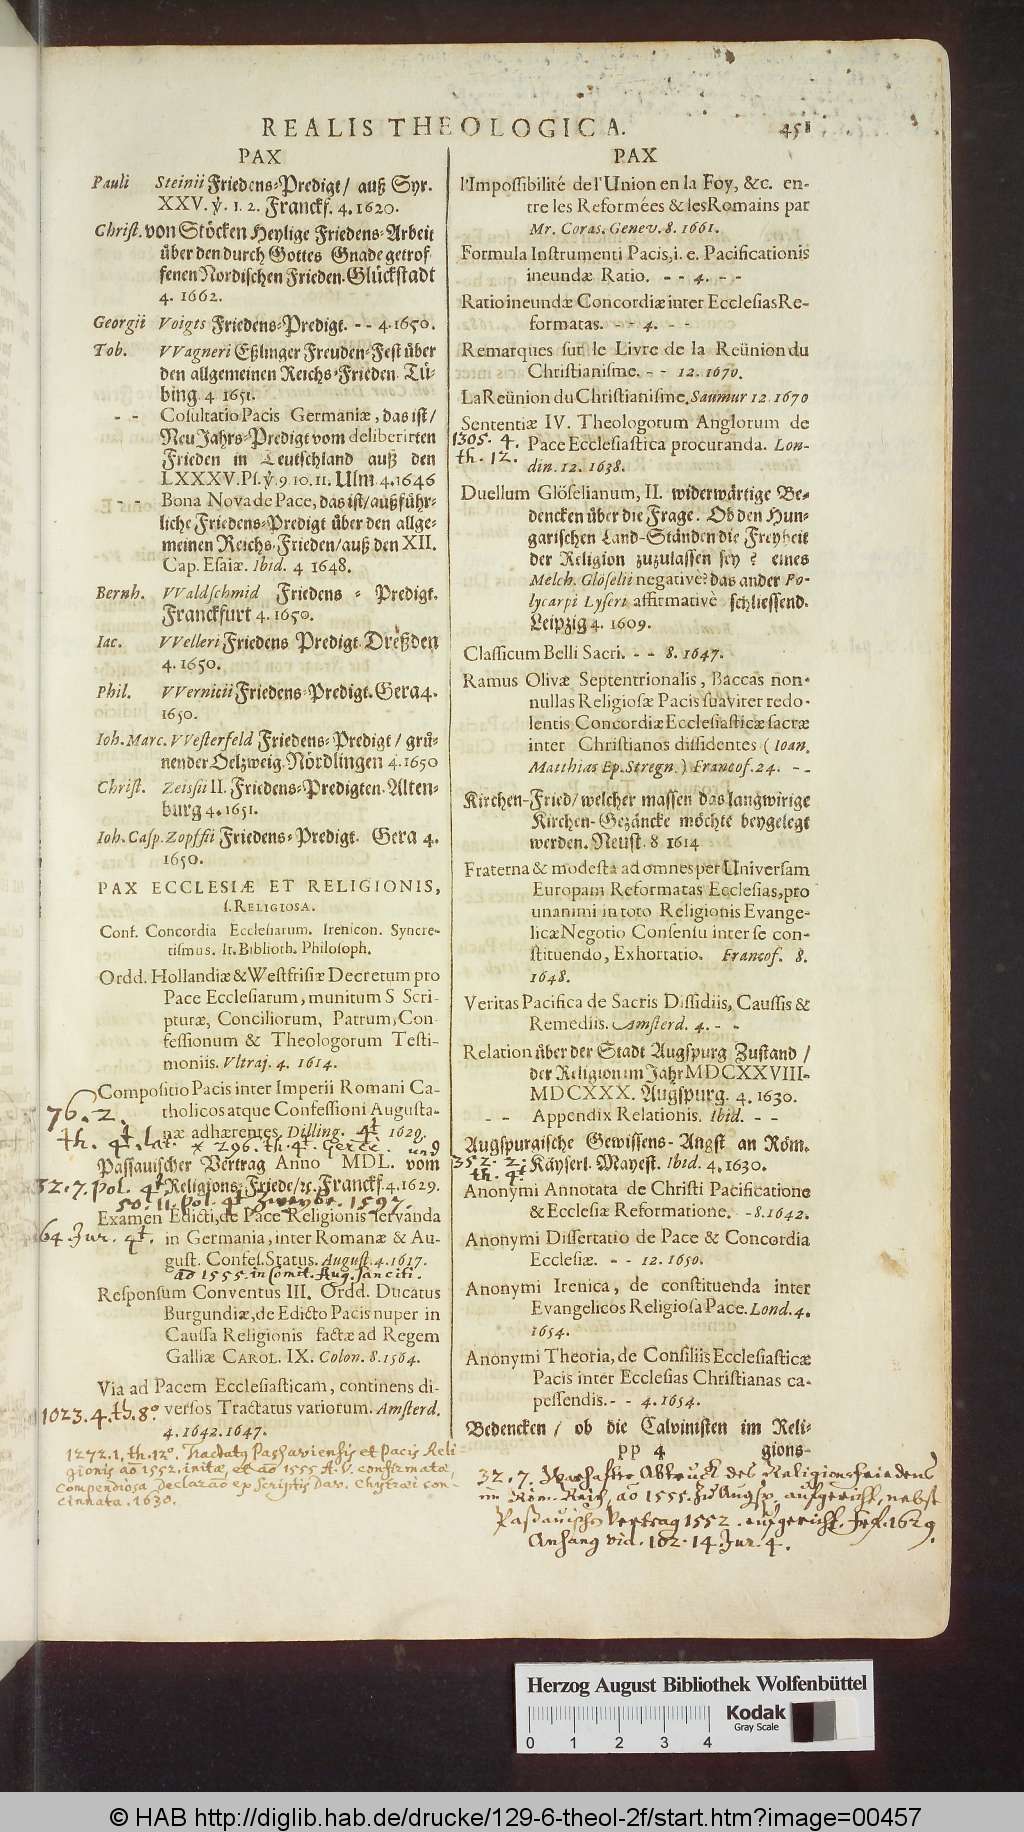 REALIS THEOLOGICA. 451
PAX
Pauli Steinii Friedens-Predigt / auß Syr.
XXV. ỹ. 1. 2. Franckf. 4. 1620.
Christ. von Stöcken Heylige Friedens-Arbeit
über den durch Gottes Gnade getrof
fenen Nordischen Frieden. Glückstadt
4. 1662.
Georgii Voigts Friedens-Predigt. - - 4. 1650.
Tob. VVagneri Eßlinger Freuden-Fest über
den allgemeinen Reichs-Frieden. Tü-
bing. 4. 1651.
- - Cosultatio Pacis Germaniæ, das ist /
Neu Jahrs-Predigt vom deliberirten
Frieden in Teutschland auß den
LXXXV. Ps. ỹ. 9. 10. 11. Ulm. 4. 1646
- - Bona Nova de Pace, das ist / außführ-
liche Friedens-Predigt über den allge-
meinen Reichs-Frieden / auß den XII.
Cap. Esaiæ. Ibid. 4 1648.
Bernh. VValdschmid Friedens-Predigt.
Franckfurt 4. 1650.
Iac. VVelleri Friedens Predigt. Dreßden
4. 1650.
Phil. VVernicii Friedens-Predigt. Gera 4.
1650.
Ioh. Marc. VVesterfeld Friedens-Predigt / grü-
nender Oelzweig. Nördlingen 4. 1650
Christ. Zeissii II. Friedens-Predigten. Alten-
burg 4. 1651.
Ioh. Casp. Zopffii Friedens-Predigt. Gera 4.
1650.
PAX ECCLESIÆ ET RELIGIONIS,
s. RELIGIOSA.
Conf. Concordia Ecclesiarum. Irenicon. Syncre-
tismus. It. Biblioth. Philosoph.
Ordd. Hollandiæ & Westfrisiæ Decretum pro
Pace Ecclesiarum, munitum S Scri-
pturæ, Conciliorum, Patrum, Con-
fessionum & Theologorum Testi-
moniis. Vltraj. 4. 1614.
Compositio Pacis inter Imperii Romani Ca-
76. 2. tholicos atque Confessioni Augusta-
næ adhærentes. Dilling. 4t. 1629.
th. 4t. lat. * 296. th. 4t. und
Passauischer Vertrag Anno MDL. vom
32. 7. pol. 4t Religions-Friede / ꝛc. Franckf. 4. 1629.
50. 11. pol. 4t 1597.
Examen Edicti, de Pace Religionis servanda
64. Jur. 4t. in Germania, inter Romanæ & Au-
gust. Confes. Status. August. 4. 1617.
ao 1555. in Comit. Aug. sanciti.
Responsum Conventus III. Ordd. Ducatus
Burgundiæ, de Edicto Pacis nuper in
Caussa Religionis factæ ad Regem
Galliæ CAROL. IX. Colon. 8. 1564.
Via ad Pacem Ecclesiasticam, continens di-
1023. 4. th. 8o versos Tractatus variorum. Amsterd.
4. 1642. 1647.
1272. 1. th. 12o. Tractatus Passaviensis et Pacis Reli-
gionis ao 1552. initæ, et ao 1555 A. V. confirmatæ,
Compendiosa Declarao ex scriptis Dav. Chytræi con-
cinnata. 1630.
PAX
l'Impossibilité de l'Union en la Foy, &c. en-
tre les Reformées & les Romains par
Mr. Coras. Genev. 8. 1661.
Formula Instrumenti Pacis, i. e. Pacificationis
ineundæ Ratio. - - 4. - -
Ratio ineundæ Concordiæ inter Ecclesias Re-
formatas. - - 4. - -
Remarques sur le Livre de la Reünion du
Christianisme. - - 12. 1670.
La Reünion du Christianisme. Saumur 12. 1670
Sententiæ IV. Theologorum Anglorum de
1305. 4. Pace Ecclesiastica procuranda. Lon-
th. 12. din. 12. 1638.
Duellum Glöselianum, II. widerwärtige Be-
dencken über die Frage. Ob den Hun-
garischen Land-Ständen die Freyheit
der Religion zuzulassen sey? eines
Melch. Glöselii negativè? das ander Po-
lycarpi Lyseri affirmativè schliessend.
Leipzig 4. 1609.
Classicum Belli Sacri. - - 8. 1647.
Ramus Olivæ Septentrionalis, Baccas non-
nullas Religiosæ Pacis suaviter redo-
lentis Concordiæ Ecclesiasticæ sacræ
inter Christianos dissidentes (Ioan.
Matthias Ep. Stregn.) Francof. 24. - -
Kirchen-Fried / welcher massen das langwirige
Kirchen-Gezäncke möchte beygelegt
werden. Neust. 8 1614
Fraterna & modesta ad omnes per Universam
Europam Reformatas Ecclesias, pro
unanimi in toto Religionis Evange-
licæ Negotio Consensu inter se con-
stituendo, Exhortatio. Francof. 8.
1648.
Veritas Pacifica de Sacris Dissidiis, Caussis &
Remediis. Amsterd. 4. - -
Relation über der Stadt Augspurg Zustand /
der Religion im Jahr MDCXXVIII-
MDCXXX. Augspurg. 4. 1630.
- - Appendix Relationis. Ibid. - -
Augspurgische Gewissens-Angst an Röm.
352. 2. Käyserl. Mayest. Ibid. 4. 1630.
th. 4t.
Anonymi Annotata de Christi Pacificatione
& Ecclesiæ Reformatione. - - 8. 1642.
Anonymi Dissertatio de Pace & Concordia
Ecclesiæ. - - 12. 1650.
Anonymi Irenica, de constituenda inter
Evangelicos Religiosa Pace. Lond. 4.
1654.
Anonymi Theoria, de Consiliis Ecclesiasticæ
Pacis inter Ecclesias Christianas ca-
pessendis. - - 4. 1654.
Bedencken / ob die Calvinisten im Reli-
pp 4 gions-
32. 7. Warhaffte Abtruck des Religionsfriedens
im Röm. Reich, ao 1555. zu Augsp. aufgericht, nebst
Passauischen Vertrag 1552. aufgericht. Frf. 1629.
Anhang vid. 102. 14. Jur. 4.
Herzog August Bibliothek Wolfenbüttel
Kodak
Gray Scale
0 1 2 3 4
© HAB http://diglib.hab.de/drucke/129-6-theol-2f/start.htm?image=00457